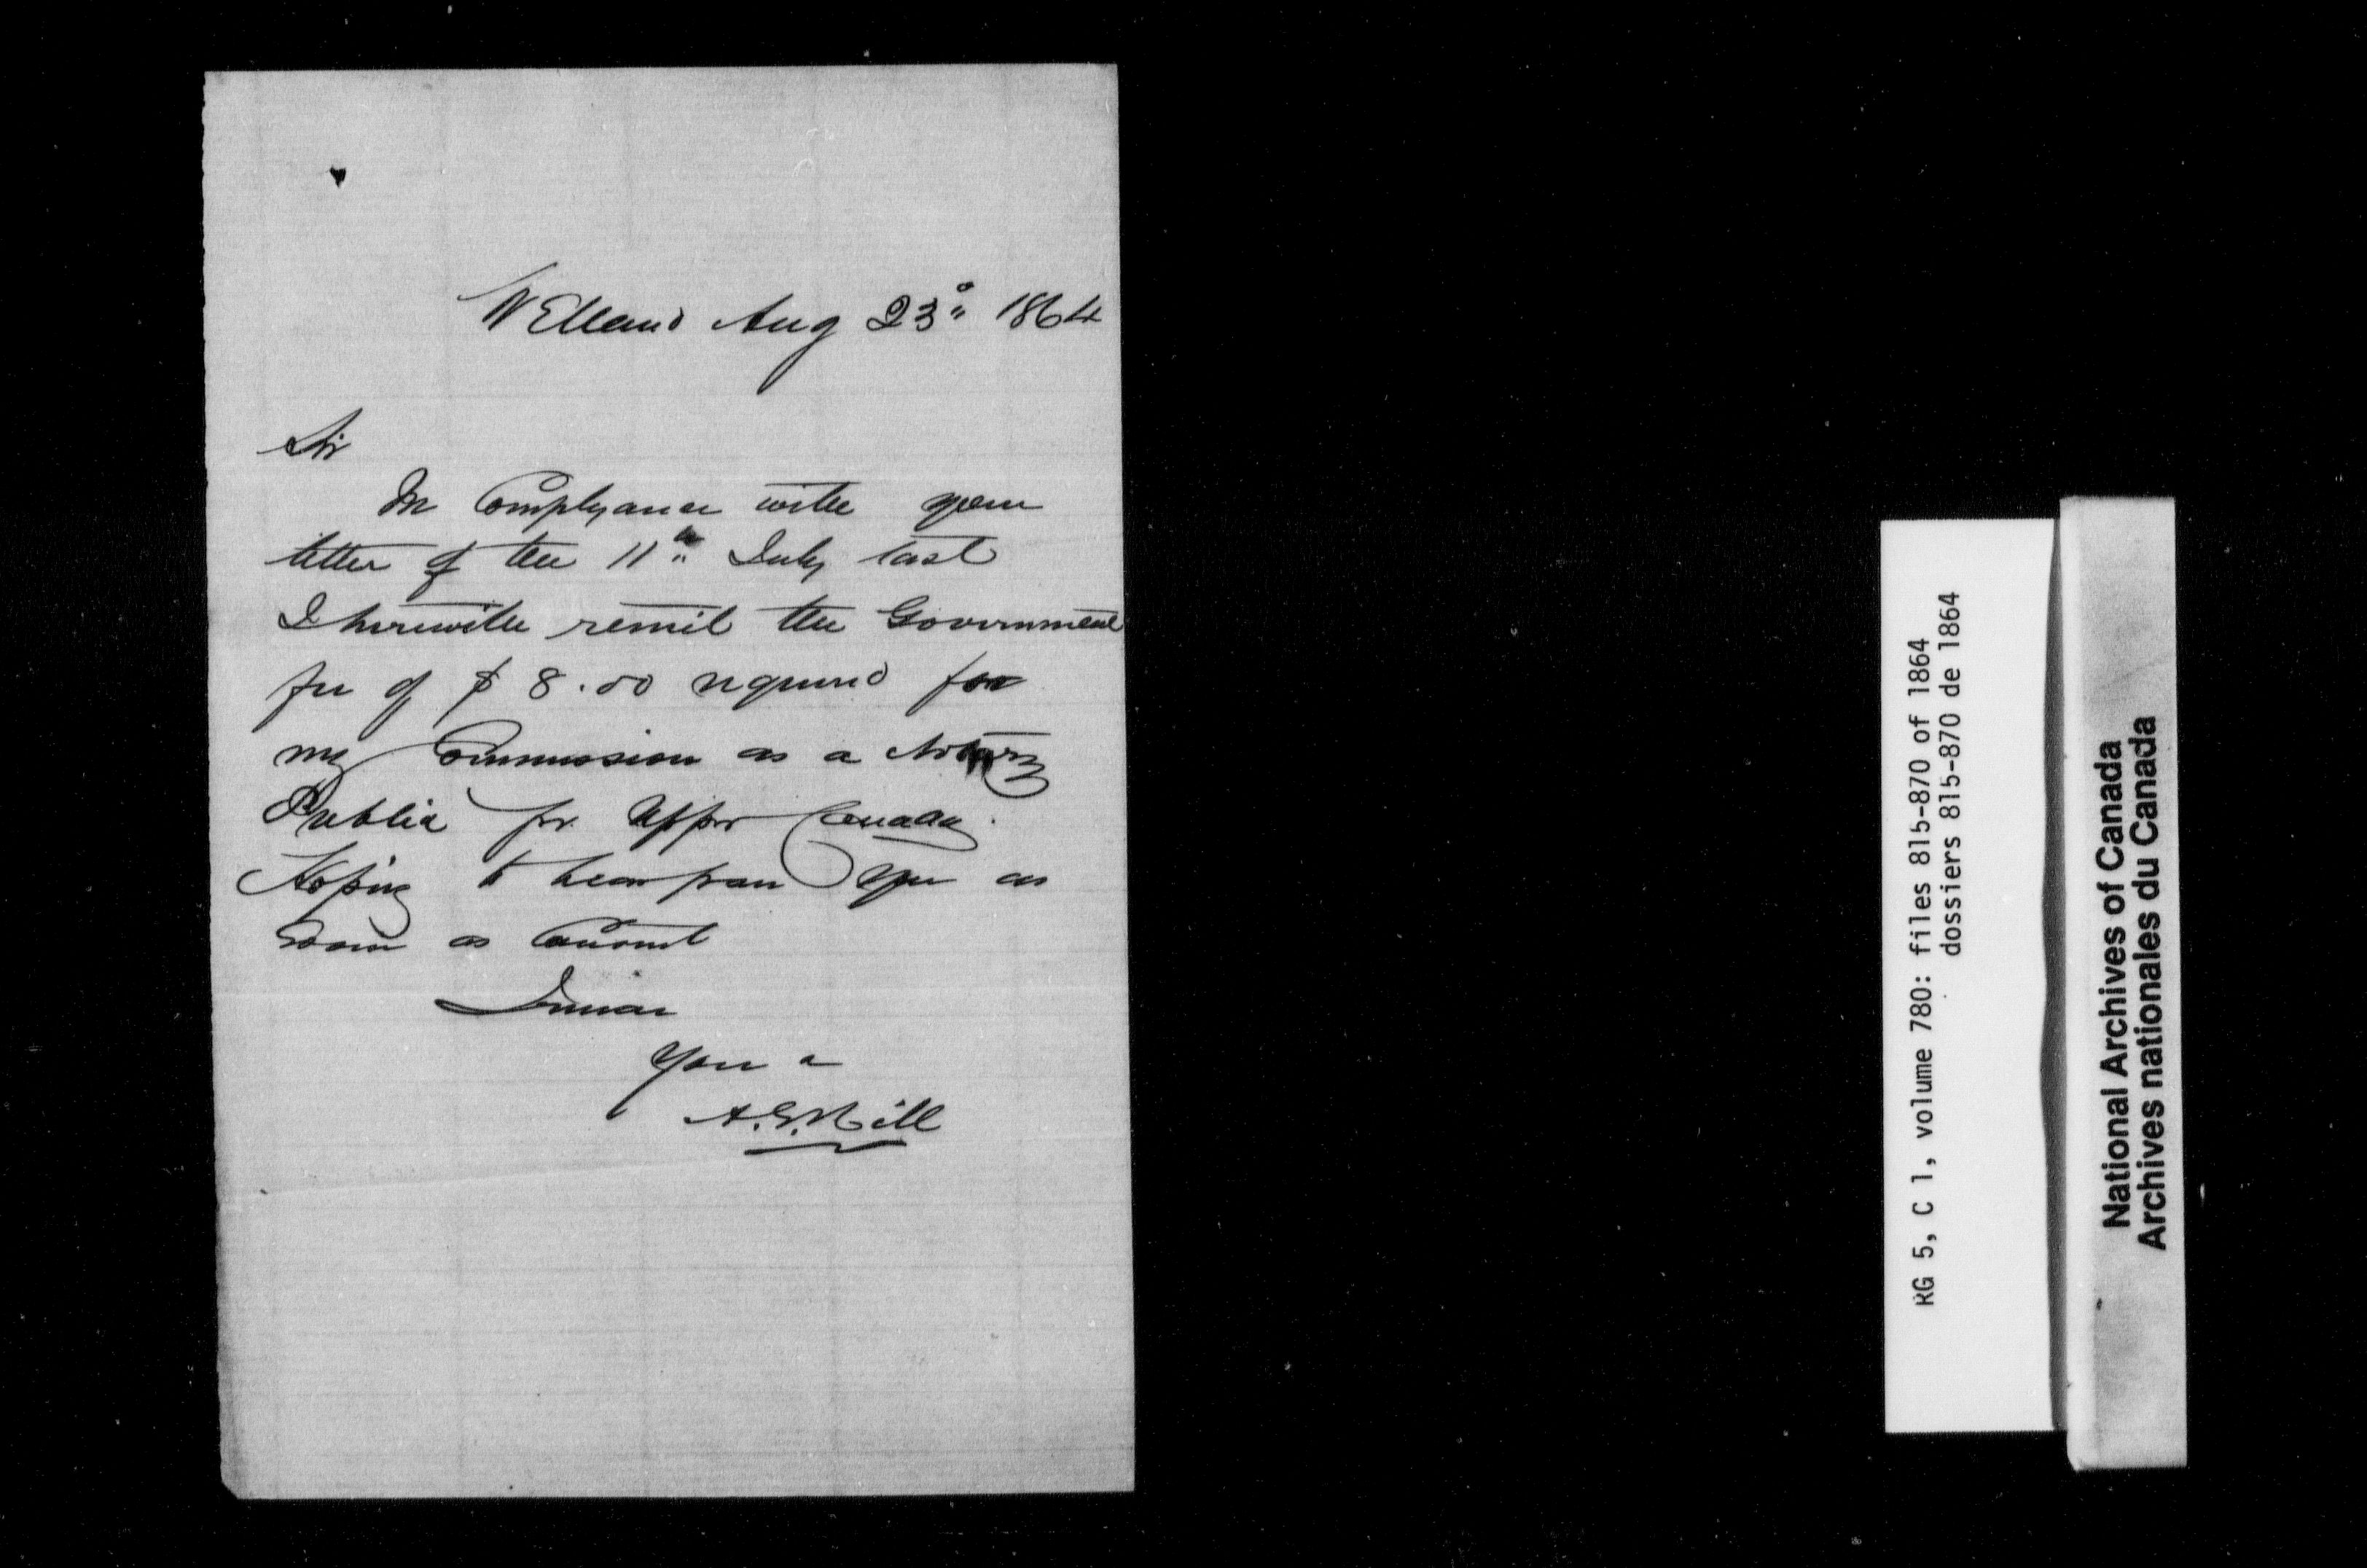 Welland Aug 23d 1864
Sir
In Complyance with your
letter of the 11th July last
I herewith remit the Government
fee of $ 8.00 required for
my Commission as a Notary
Public for Upper Canada.
Hoping to hear from you as
soon as
I remain
Your
A.G. Hill
RG 5, C 1, volume 780: files 815-870 of 1864
dossiers 815-870 de 1864
National Archives of Canada
Archives nationales du Canada